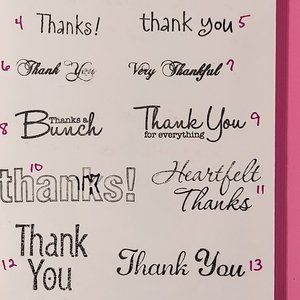 4 Thanks!
thank you 5
6 Thank You
Very Thankful 7
8 Thanks a
Bunch
Thank You 9
for everything
10
thanks!
Heartfelt
Thanks 11
12 Thank
You
Thank You 13